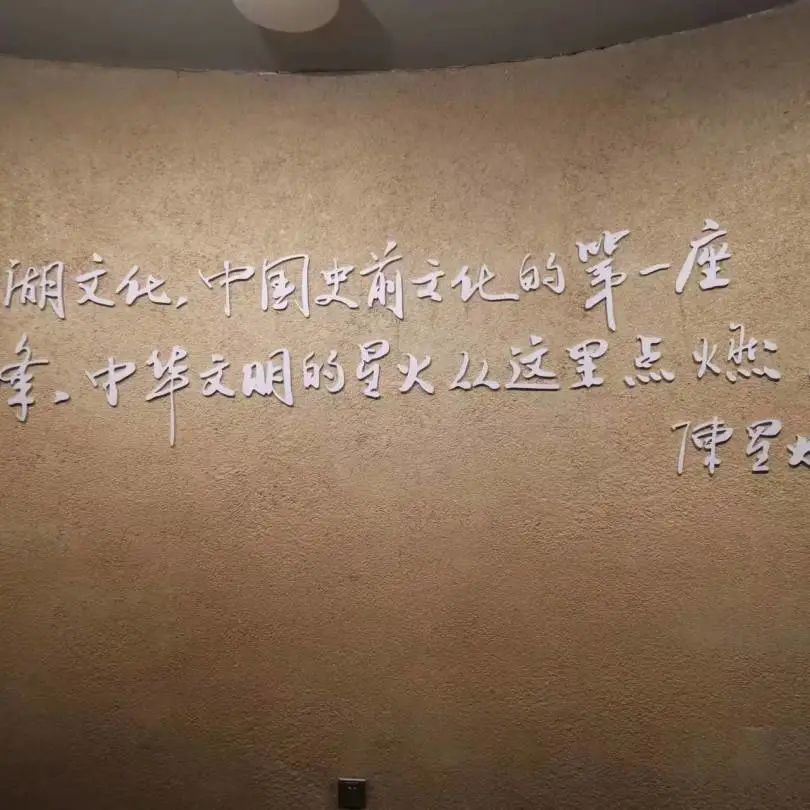 湖文化,中国史前文化的第一座
峰、中华文明的星火从这里点燃
陈星